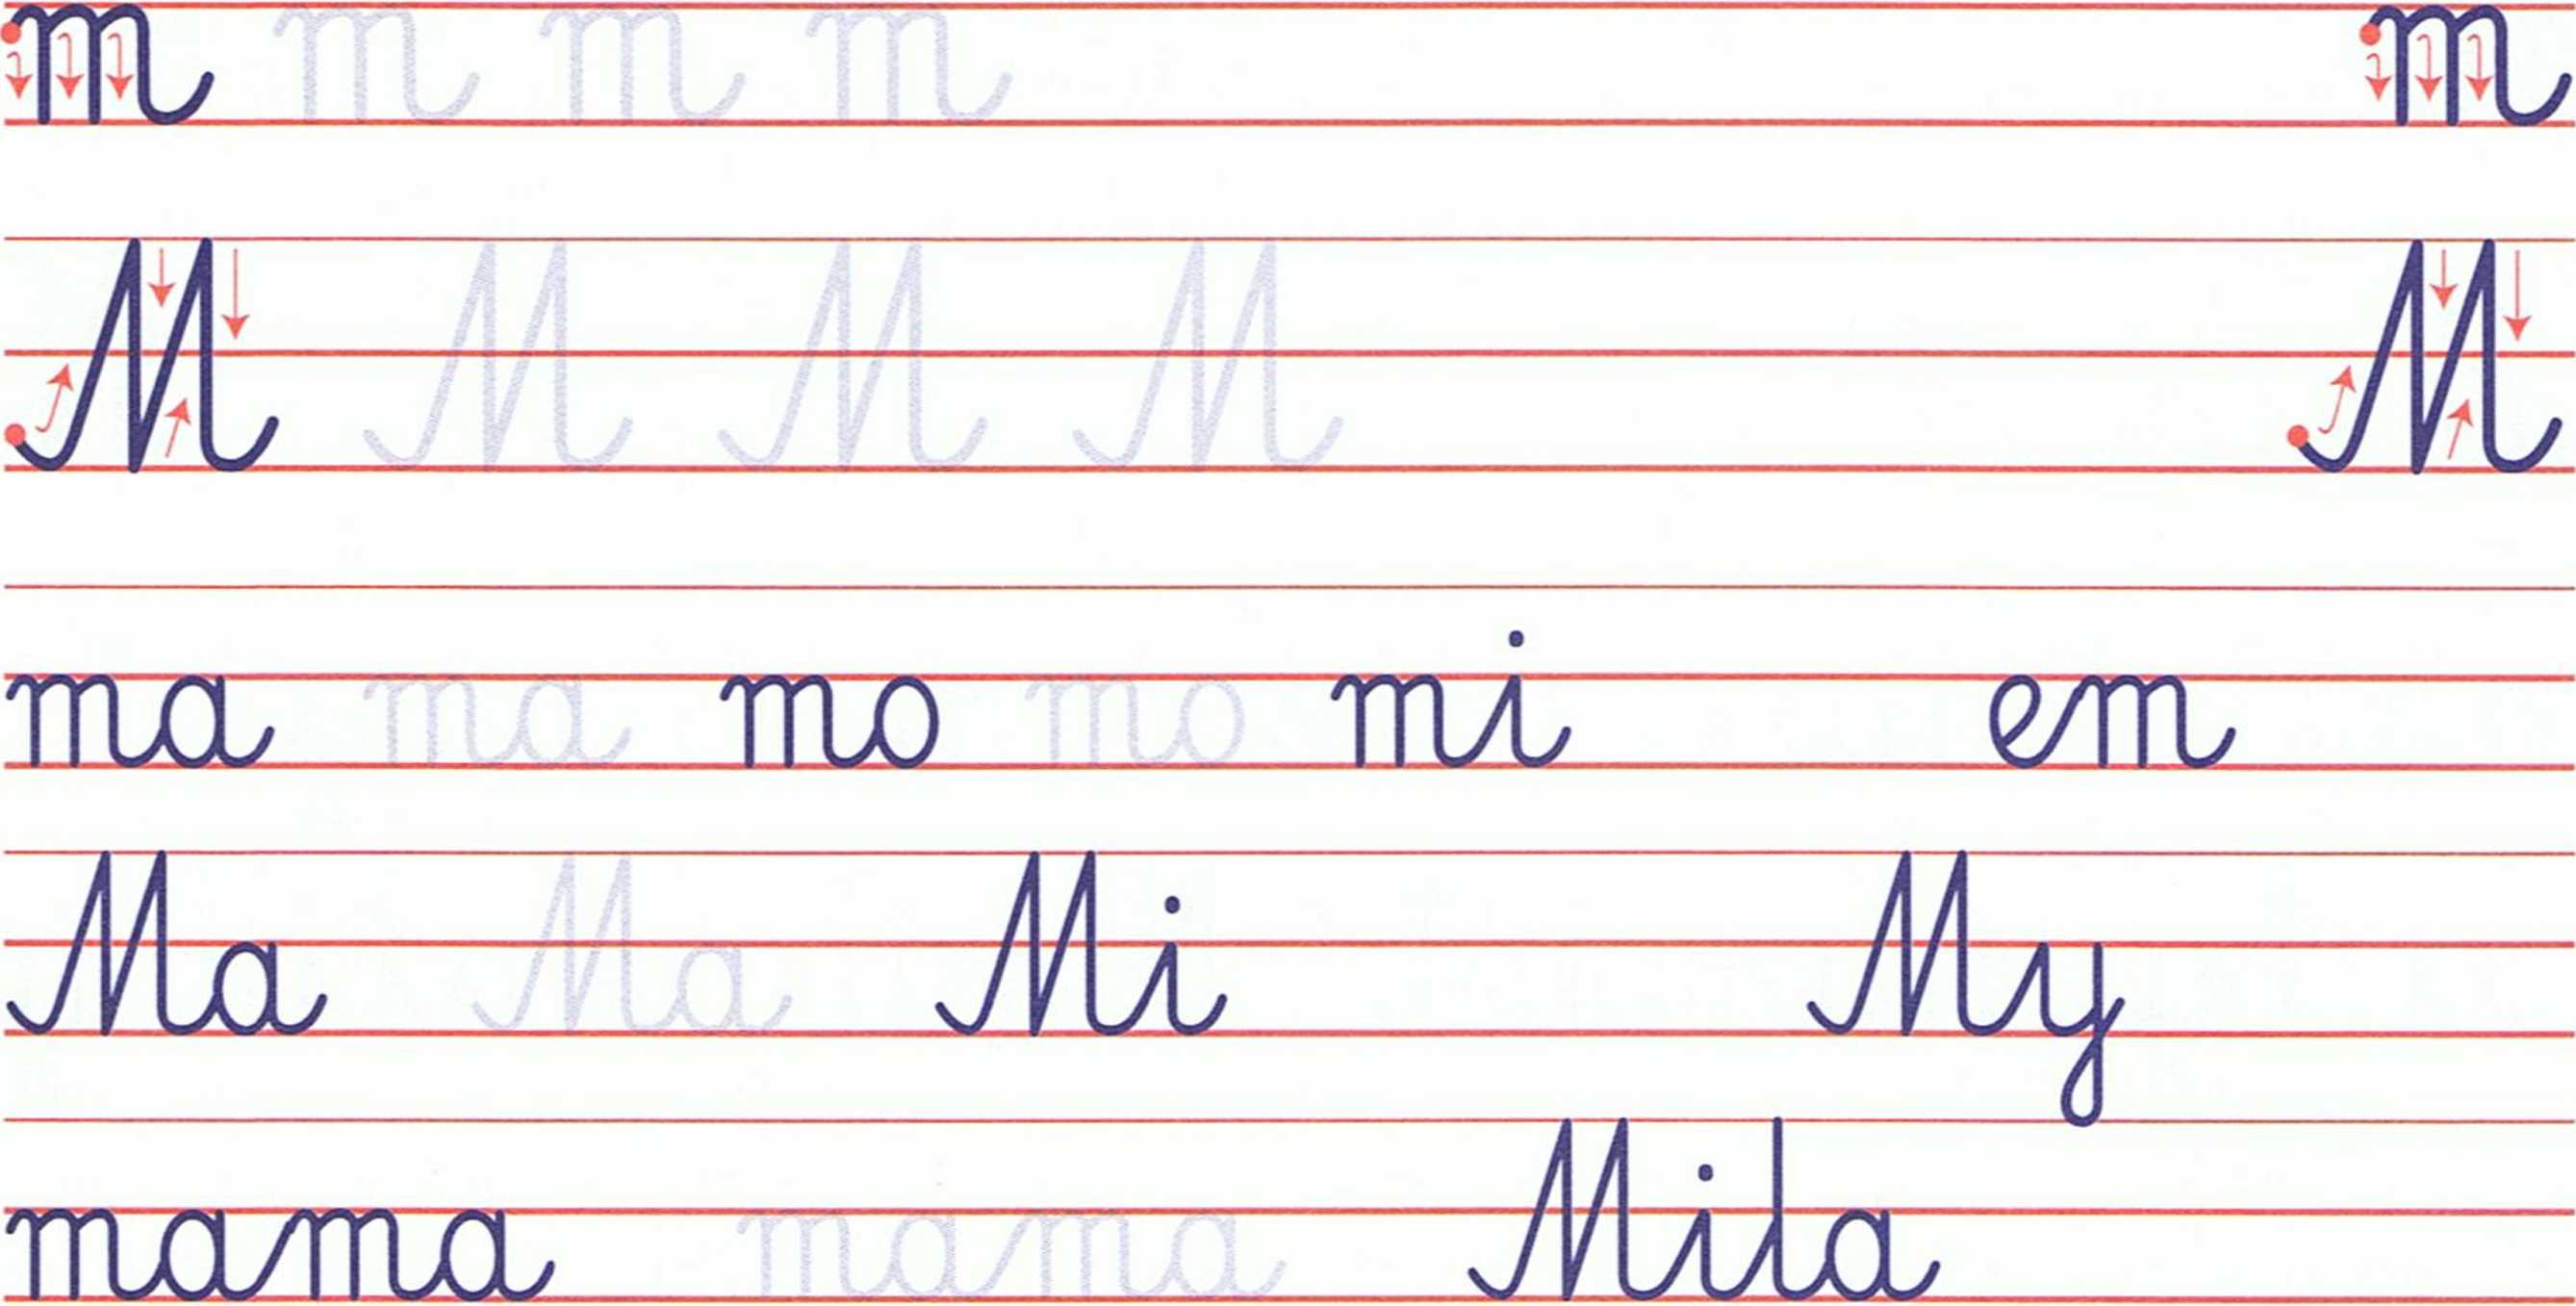 m m m m m
M M M M M
ma ma mo mo mi em
Ma Ma Mi My
mama mama Mila